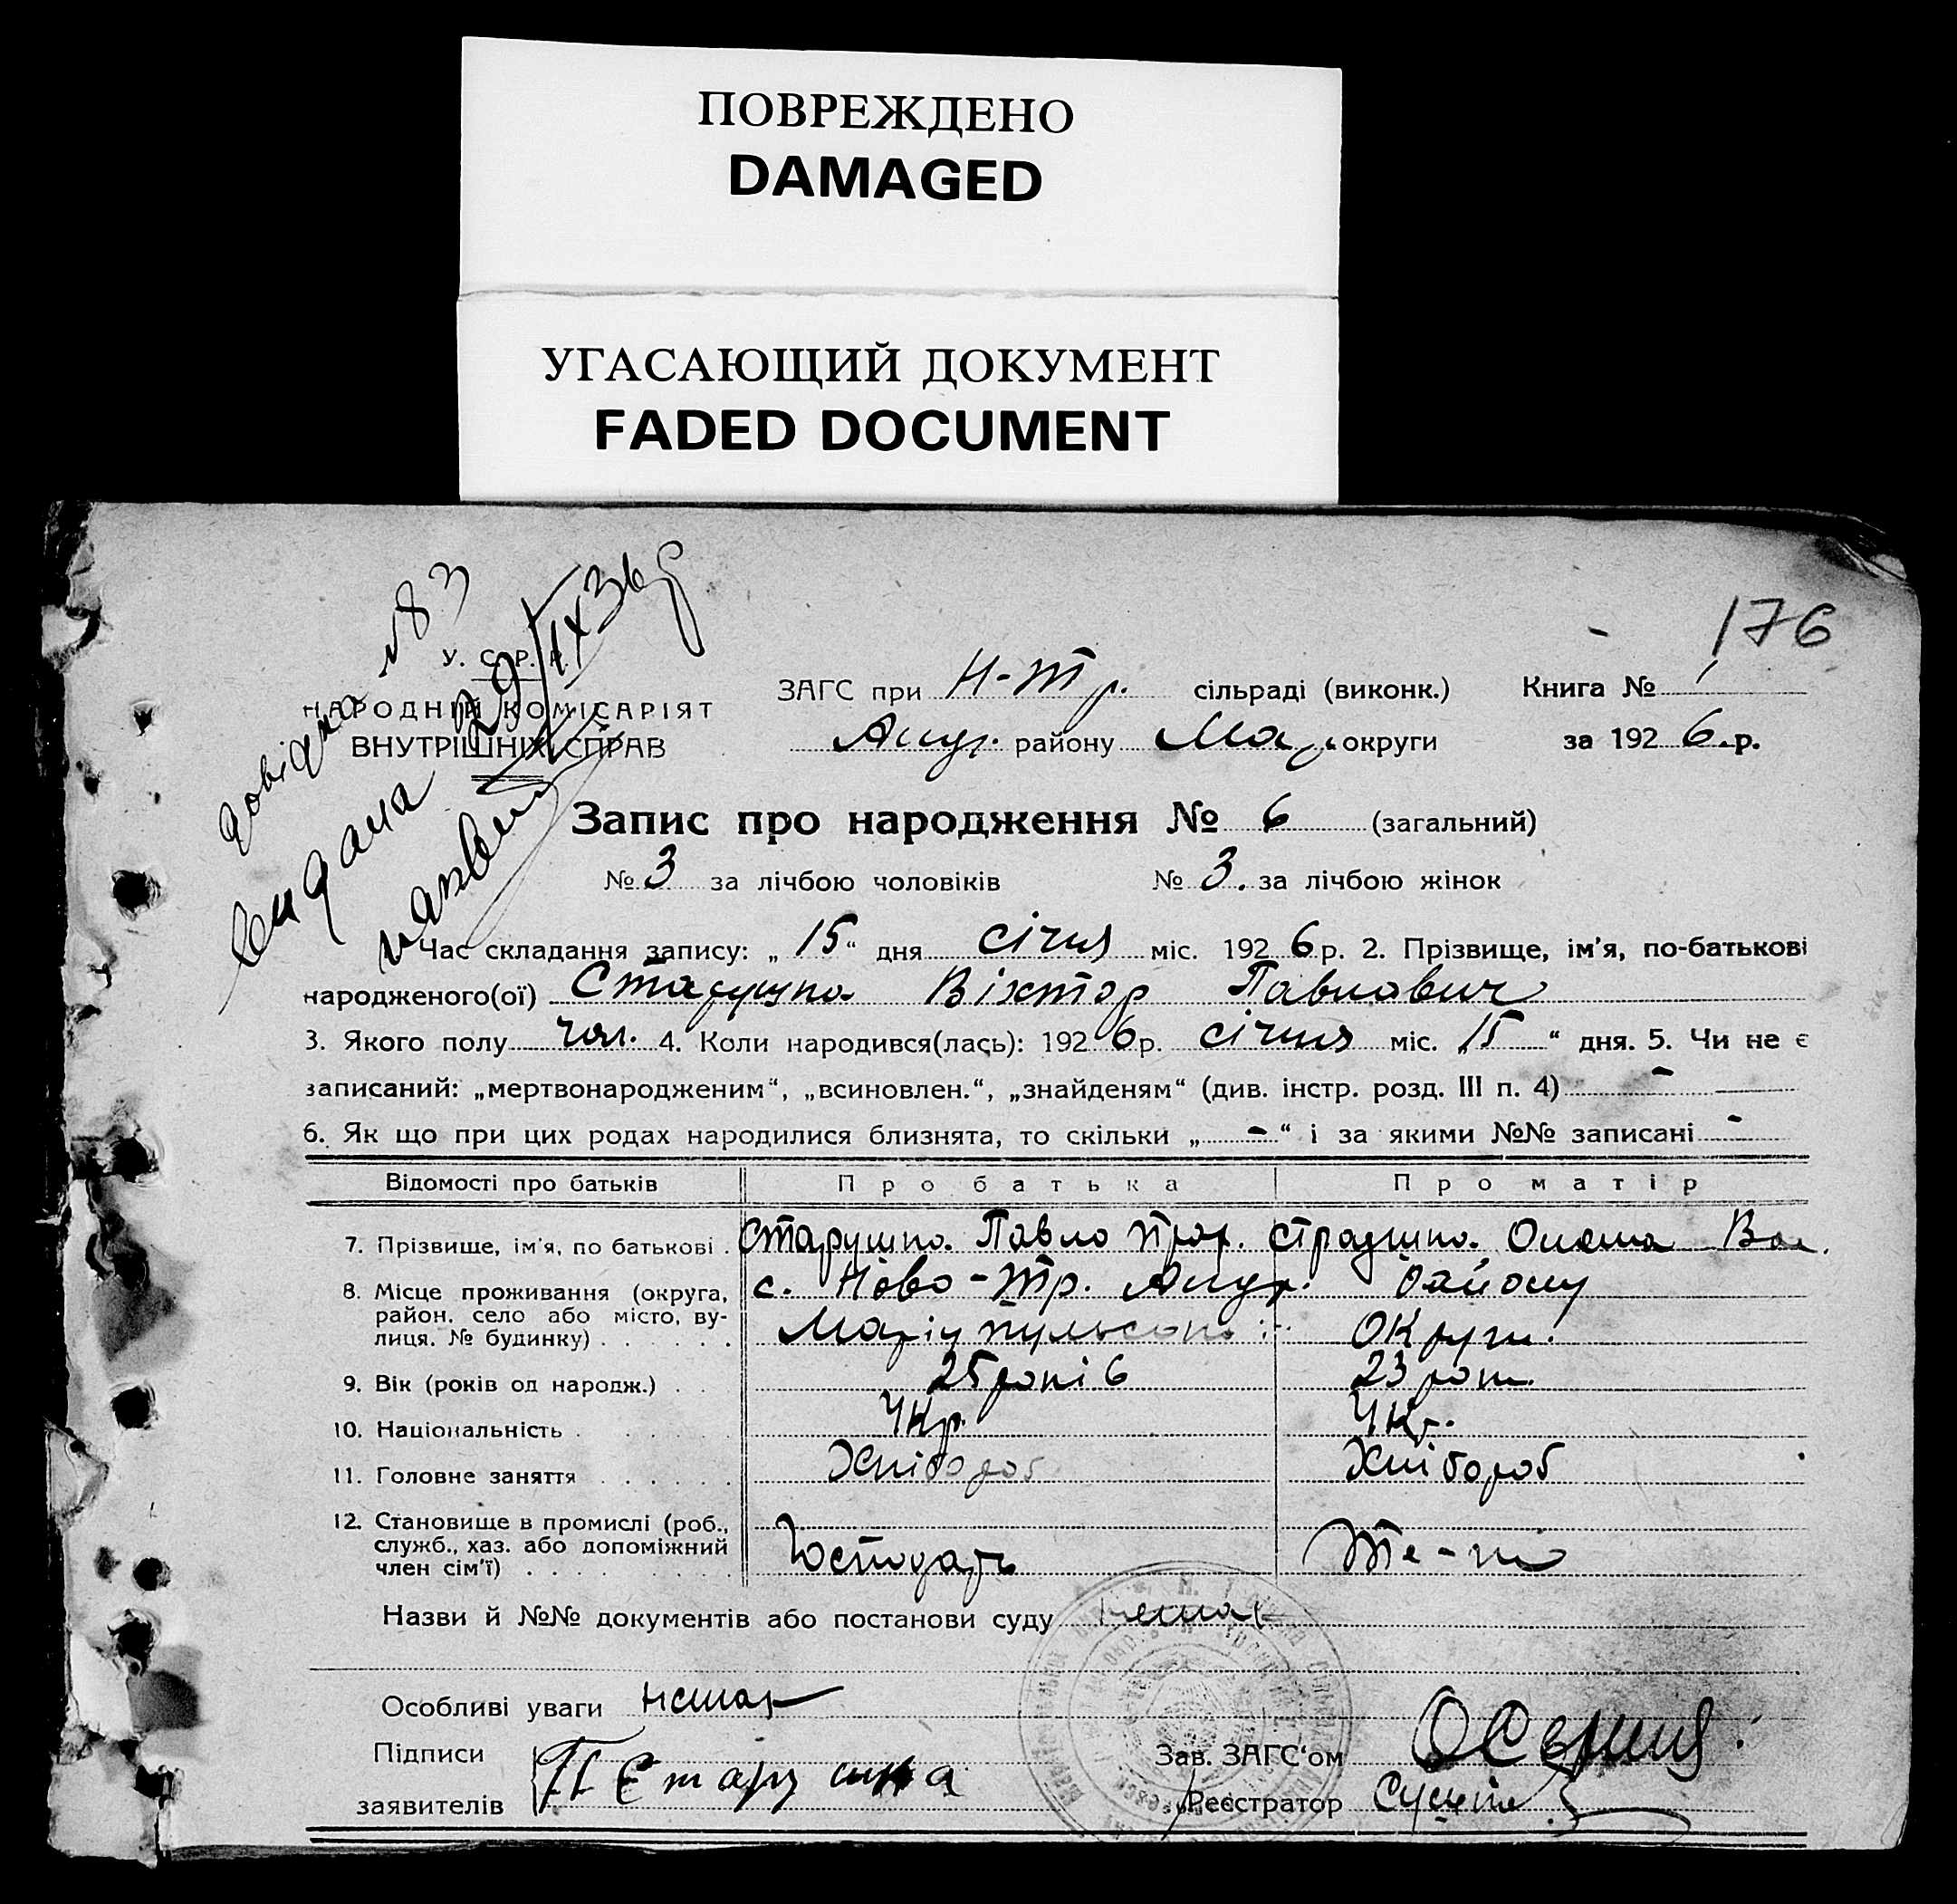 ПОВРЕЖДЕНО
DAMAGED
УГАСАЮЩИЙ ДОКУМЕНТ
FADED DOCUMENT
176
довідка №83
видана 29/IX 36р
У. С. Р. Р.
НАРОДНІЙ КОМІСАРІЯТ
ВНУТРІШНІХ СПРАВ
ЗАГС при Н-Тр. сільраді (виконк.) Книга № 1
району Мар. округи за 1926 р.
Запис про народження № 6 (загальний)
№ 3 за лічбою чоловіків № 3. за лічбою жінок
Час складання запису: „15“ дня січня міс. 1926 р. 2. Прізвище, ім’я, по-батькові
народженого(ої) Старушка Віктор Павлович
3. Якого полу чол. 4. Коли народився(лась): 1926 р. січня міс. „15“ дня. 5. Чи не є
записаний: „мертвонародженим“, „всиновлен.“, „знайденям“ (див. інстр. розд. III п. 4) -
6. Як що при цих родах народилися близнята, то скільки „-“ і за якими №№ записані -
Відомості про батьків Про батька Про матір
7. Прізвище, ім’я, по батькові . Старушка Павло Олена
8. Місце проживання (округа, с. Ново-Тр. району
район, село або місто, ву- Маріупульської округи.
лиця, № будинку) . . . . . .
9. Вік (років од народж.) . . 25 років 23 роки
10. Національність . . . . . Укр. Укр.
11. Головне заняття . . . . . Хлібороб Хлібороб
12. Становище в промислі (роб.,
служб., хаз. або допоміжний Господарь
член сім’ї) . . . . . . . .
Назви й №№ документів або постанови суду немає
Особливі уваги немає
Підписи
заявителів П Старушка
Зав. ЗАГС‘ом
Реєстратор